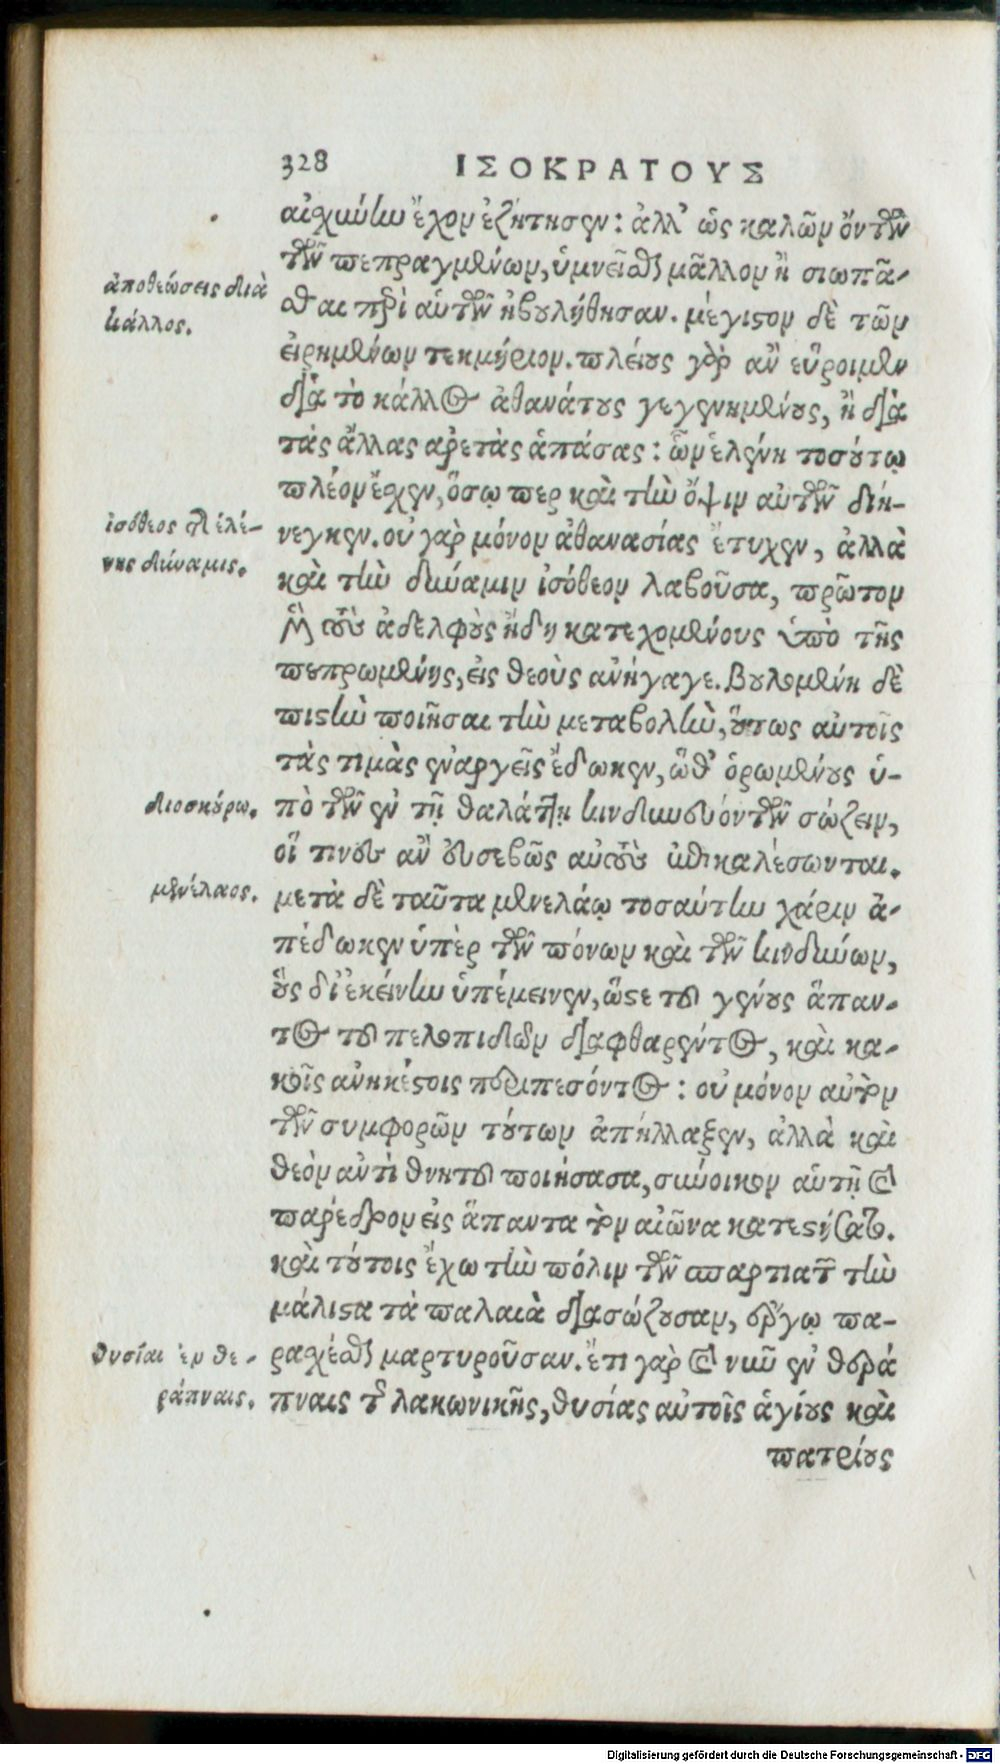 328 ΙΣΟΚΡΑΤΟΥΣ
αἰσχύνην ἔχον ἐζήτησεν: ἀλλ' ὡς καλῶν ὄντων
τῶν πεπραγμένων, ὑμνεῖσθαι μᾶλλον ἢ σιωπᾶ-
σθαι περὶ αὐτῶν ἠβουλήθησαν. μέγιστον δὲ τῶν
εἰρημένων τεκμήριον. πλείους γὰρ ἂν εὕροιμεν
διὰ τὸ κάλλος ἀθανάτους γεγενημένους, ἢ διὰ
τὰς ἄλλας ἀρετὰς ἁπάσας: ὧν ἑλένη τοσούτῳ
πλέον ἔσχεν, ὅσῳ περ καὶ τὴν ὄψιν αὐτῶν διή-
νεγκεν. οὐ γὰρ μόνον ἀθανασίας ἔτυχεν, ἀλλὰ
καὶ τὴν δύναμιν ἰσόθεον λαβοῦσα, πρῶτον
μὲν τοὺς ἀδελφοὺς ἤδη κατεχομένους ὑπὸ τῆς
πεπρωμένης, εἰς θεοὺς ἀνήγαγε. βουλομένη δὲ
πιστὴν ποιῆσαι τὴν μεταβολὴν, οὕτως αὐτοῖς
τὰς τιμὰς ἐναργεῖς ἔδωκεν, ὥσθ' ὁρωμένους ὑ-
πὸ τῶν ἐν τῇ θαλάττῃ κινδυνευόντων σώζειν,
οἵ τινες ἂν εὐσεβῶς αὐτοὺς ἐπικαλέσωνται.
μετὰ δὲ ταῦτα μενελάῳ τοσαύτην χάριν ἀ-
πέδωκεν ὑπὲρ τῶν πόνων καὶ τῶν κινδύνων,
οὓς δι' ἐκείνην ὑπέμεινεν, ὥστε τοῦ γένους ἅπαν-
τος τοῦ πελοπιδῶν διαφθαρέντος, καὶ κα-
κοῖς ἀνηκέστοις περιπεσόντος: οὐ μόνον αὐτὸν
τῶν συμφορῶν τούτων ἀπήλλαξεν, ἀλλὰ καὶ
θεὸν ἀντὶ θνητοῦ ποιήσασα, σύνοικον αὑτῇ καὶ
πάρεδρον εἰς ἅπαντα τὸν αἰῶνα κατεστήσατο.
καὶ τούτοις ἔχω τὴν πόλιν τῶν σπαρτιατῶν τὴν
μάλιστα τὰ παλαιὰ διασώζουσαν, ἔργῳ πα-
ρασχέσθαι μαρτυροῦσαν. ἔτι γὰρ καὶ νῦν ἐν θερά
πναις τῆς λακωνικῆς, θυσίας αὐτοῖς ἁγίους καὶ
πατρίους
ἀποθεώσεις διὰ
κάλλος.
ἰσόθεος τῆς ἑλέ-
νης δύναμις.
διοσκύρω.
μενέλαος.
θυσίαι ἐν θε-
ράπναις.
Digitalisierung gefördert durch die Deutsche Forschungsgemeinschaft - DFG